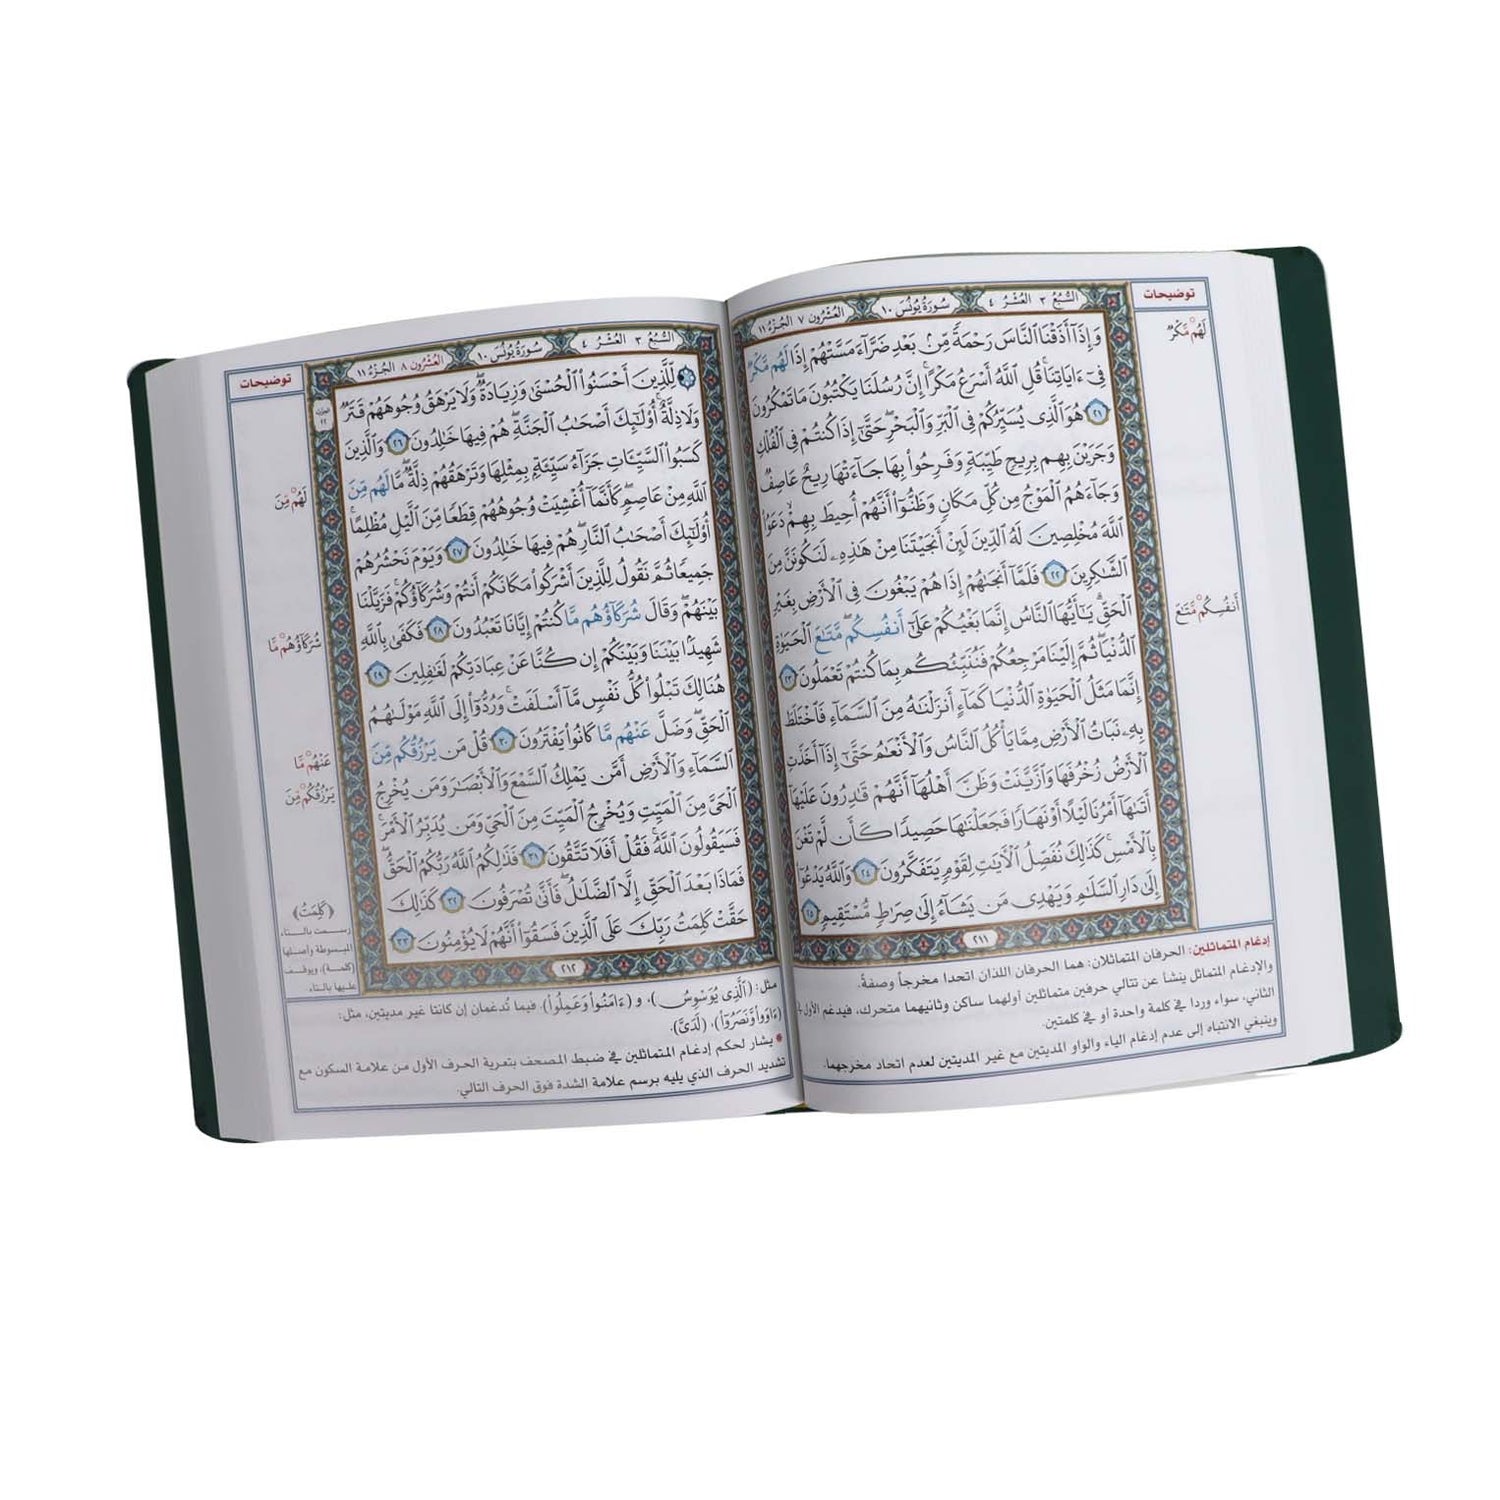 السُّبُع ٣ العُشْر ٤ سُورَةُ يُونُس ١٠ العُشْرُون ٧ الجُزْء ١١
توضيحات
وَإِذَآ أَذَقْنَا ٱلنَّاسَ رَحْمَةً مِّنۢ بَعْدِ ضَرَّآءَ مَسَّتْهُمْ إِذَا لَهُم مَّكْرٌ
فِىٓ ءَايَاتِنَا ۚ قُلِ ٱللَّهُ أَسْرَعُ مَكْرًا ۚ إِنَّ رُسُلَنَا يَكْتُبُونَ مَا تَمْكُرُونَ
٢١ هُوَ ٱلَّذِى يُسَيِّرُكُمْ فِى ٱلْبَرِّ وَٱلْبَحْرِ ۖ حَتَّىٰٓ إِذَا كُنتُمْ فِى ٱلْفُلْكِ
وَجَرَيْنَ بِهِم بِرِيحٍ طَيِّبَةٍ وَفَرِحُوا۟ بِهَا جَآءَتْهَا رِيحٌ عَاصِفٌ
وَجَآءَهُمُ ٱلْمَوْجُ مِن كُلِّ مَكَانٍ وَظَنُّوٓا۟ أَنَّهُمْ أُحِيطَ بِهِمْ ۙ دَعَوُا۟
ٱللَّهَ مُخْلِصِينَ لَهُ ٱلدِّينَ لَئِنْ أَنجَيْتَنَا مِنْ هَٰذِهِۦ لَنَكُونَنَّ مِنَ
ٱلشَّٰكِرِينَ ٢٢ فَلَمَّآ أَنجَىٰهُمْ إِذَا هُمْ يَبْغُونَ فِى ٱلْأَرْضِ بِغَيْرِ
ٱلْحَقِّ ۗ يَٰٓأَيُّهَا ٱلنَّاسُ إِنَّمَا بَغْيُكُمْ عَلَىٰٓ أَنفُسِكُم ۖ مَّتَٰعَ ٱلْحَيَوٰةِ
ٱلدُّنْيَا ۖ ثُمَّ إِلَيْنَا مَرْجِعُكُمْ فَنُنَبِّئُكُم بِمَا كُنتُمْ تَعْمَلُونَ ٢٣
إِنَّمَا مَثَلُ ٱلْحَيَوٰةِ ٱلدُّنْيَا كَمَآءٍ أَنزَلْنَٰهُ مِنَ ٱلسَّمَآءِ فَٱخْتَلَطَ
بِهِۦ نَبَاتُ ٱلْأَرْضِ مِمَّا يَأْكُلُ ٱلنَّاسُ وَٱلْأَنْعَٰمُ حَتَّىٰٓ إِذَآ أَخَذَتِ
ٱلْأَرْضُ زُخْرُفَهَا وَٱزَّيَّنَتْ وَظَنَّ أَهْلُهَآ أَنَّهُمْ قَٰدِرُونَ عَلَيْهَآ
أَتَىٰهَآ أَمْرُنَا لَيْلًا أَوْ نَهَارًا فَجَعَلْنَٰهَا حَصِيدًا كَأَن لَّمْ تَغْنَ
بِٱلْأَمْسِ ۚ كَذَٰلِكَ نُفَصِّلُ ٱلْأَيَٰتِ لِقَوْمٍ يَتَفَكَّرُونَ ٢٤ وَٱللَّهُ يَدْعُوٓا۟
إِلَىٰ دَارِ ٱلسَّلَٰمِ وَيَهْدِى مَن يَشَآءُ إِلَىٰ صِرَٰطٍ مُّسْتَقِيمٍ ٢٥
٢١١
لَهُمْ مَّكْرٌ
أَنفُسِكُمْ مَّتَٰعَ
إدغام المتماثلين: الحرفان المتماثلان: هما الحرفان اللذان اتحدا مخرجاً وصفةً.
والإدغام المتماثل ينشأ عن تتالي حرفين متماثلين أولهما ساكن وثانيهما متحرك، فيدغم الأول في
الثاني، سواء وردا في كلمة واحدة أو في كلمتين.
وينبغي الانتباه إلى عدم إدغام الياء والواو المديتين مع غير المديتين لعدم اتحاد مخرجهما.
السُّبُع ٣ العُشْر ٤ سُورَةُ يُونُس ١٠ العُشْرُون ٨ الجُزْء ١١
توضيحات
لِّلَّذِينَ أَحْسَنُوا۟ ٱلْحُسْنَىٰ وَزِيَادَةٌ ۖ وَلَا يَرْهَقُ وُجُوهَهُمْ قَتَرٌ
وَلَا ذِلَّةٌ ۚ أُو۟لَٰٓئِكَ أَصْحَٰبُ ٱلْجَنَّةِ ۖ هُمْ فِيهَا خَٰلِدُونَ ٢٦ وَٱلَّذِينَ
كَسَبُوا۟ ٱلسَّيِّـَٔاتِ جَزَآءُ سَيِّئَةٍۭ بِمِثْلِهَا وَتَرْهَقُهُمْ ذِلَّةٌ ۖ مَّا لَهُم مِّنَ
ٱللَّهِ مِنْ عَاصِمٍ ۖ كَأَنَّمَآ أُغْشِيَتْ وُجُوهُهُمْ قِطَعًا مِّنَ ٱلَّيْلِ مُظْلِمًا ۚ
أُو۟لَٰٓئِكَ أَصْحَٰبُ ٱلنَّارِ ۖ هُمْ فِيهَا خَٰلِدُونَ ٢٧ وَيَوْمَ نَحْشُرُهُمْ
جَمِيعًا ثُمَّ نَقُولُ لِلَّذِينَ أَشْرَكُوا۟ مَكَانَكُمْ أَنتُمْ وَشُرَكَآؤُكُمْ ۚ فَزَيَّلْنَا
بَيْنَهُمْ ۖ وَقَالَ شُرَكَآؤُهُم مَّا كُنتُمْ إِيَّانَا تَعْبُدُونَ ٢٨ فَكَفَىٰ بِٱللَّهِ
شَهِيدًۢا بَيْنَنَا وَبَيْنَكُمْ إِن كُنَّا عَنْ عِبَادَتِكُمْ لَغَٰفِلِينَ ٢٩
هُنَالِكَ تَبْلُوا۟ كُلُّ نَفْسٍ مَّآ أَسْلَفَتْ ۚ وَرُدُّوٓا۟ إِلَى ٱللَّهِ مَوْلَىٰهُمُ
ٱلْحَقِّ ۖ وَضَلَّ عَنْهُم مَّا كَانُوا۟ يَفْتَرُونَ ٣٠ قُلْ مَن يَرْزُقُكُم مِّنَ
ٱلسَّمَآءِ وَٱلْأَرْضِ أَمَّن يَمْلِكُ ٱلسَّمْعَ وَٱلْأَبْصَٰرَ وَمَن يُخْرِجُ
ٱلْحَىَّ مِنَ ٱلْمَيِّتِ وَيُخْرِجُ ٱلْمَيِّتَ مِنَ ٱلْحَىِّ وَمَن يُدَبِّرُ ٱلْأَمْرَ ۚ
فَسَيَقُولُونَ ٱللَّهُ ۚ فَقُلْ أَفَلَا تَتَّقُونَ ٣١ فَذَٰلِكُمُ ٱللَّهُ رَبُّكُمُ ٱلْحَقُّ ۖ
فَمَاذَا بَعْدَ ٱلْحَقِّ إِلَّا ٱلضَّلَٰلُ ۖ فَأَنَّىٰ تُصْرَفُونَ ٣٢ كَذَٰلِكَ
حَقَّتْ كَلِمَتُ رَبِّكَ عَلَى ٱلَّذِينَ فَسَقُوٓا۟ أَنَّهُمْ لَا يُؤْمِنُونَ ٣٣
٢١٢
لَهُمْ مِّنَ
شُرَكَآؤُهُمْ مَّا
عَنْهُمْ مَّا
يَرْزُقُكُمْ مِّنَ
(كَلِمَتُ)
رسمت بالتاء
المبسوطة وأصلها
(كلمة)، ويوقف
عليها بالتاء.
مثل: (ٱلَّذِى يُوَسْوِسُ)، و (ءَامَنُوا۟ وَعَمِلُوا۟). فيما تُدغمان إن كانتا غير مديتين، مثل:
(ءَاوَوا۟ وَّنَصَرُوٓا۟)، (لَدَىَّ).
* يشار لحكم إدغام المتماثلين في ضبط المصحف بتعرية الحرف الأول من علامة السكون مع
تشديد الحرف الذي يليه برسم علامة الشدة فوق الحرف التالي.